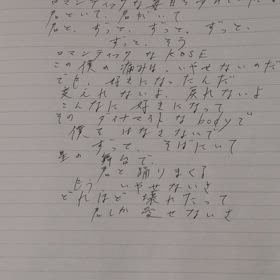 ロマンティックな毎日を
君といて、君がいて
君と、ずっと、ずっと、ずっと、
ずっと、そう
ロマンティックな KOSE
この僕の痛みは、いやせないのだ
でも、好きになったんだ
変えれないよ、戻れないよ
こんなに好きになって
そのダイナマイトなbodyで
僕をはなさないで
ずっと、そばにいて
星の舞台で、
君と踊りまくる
もう、いやせないさ
どれほど壊れたって
君しか愛せないさ